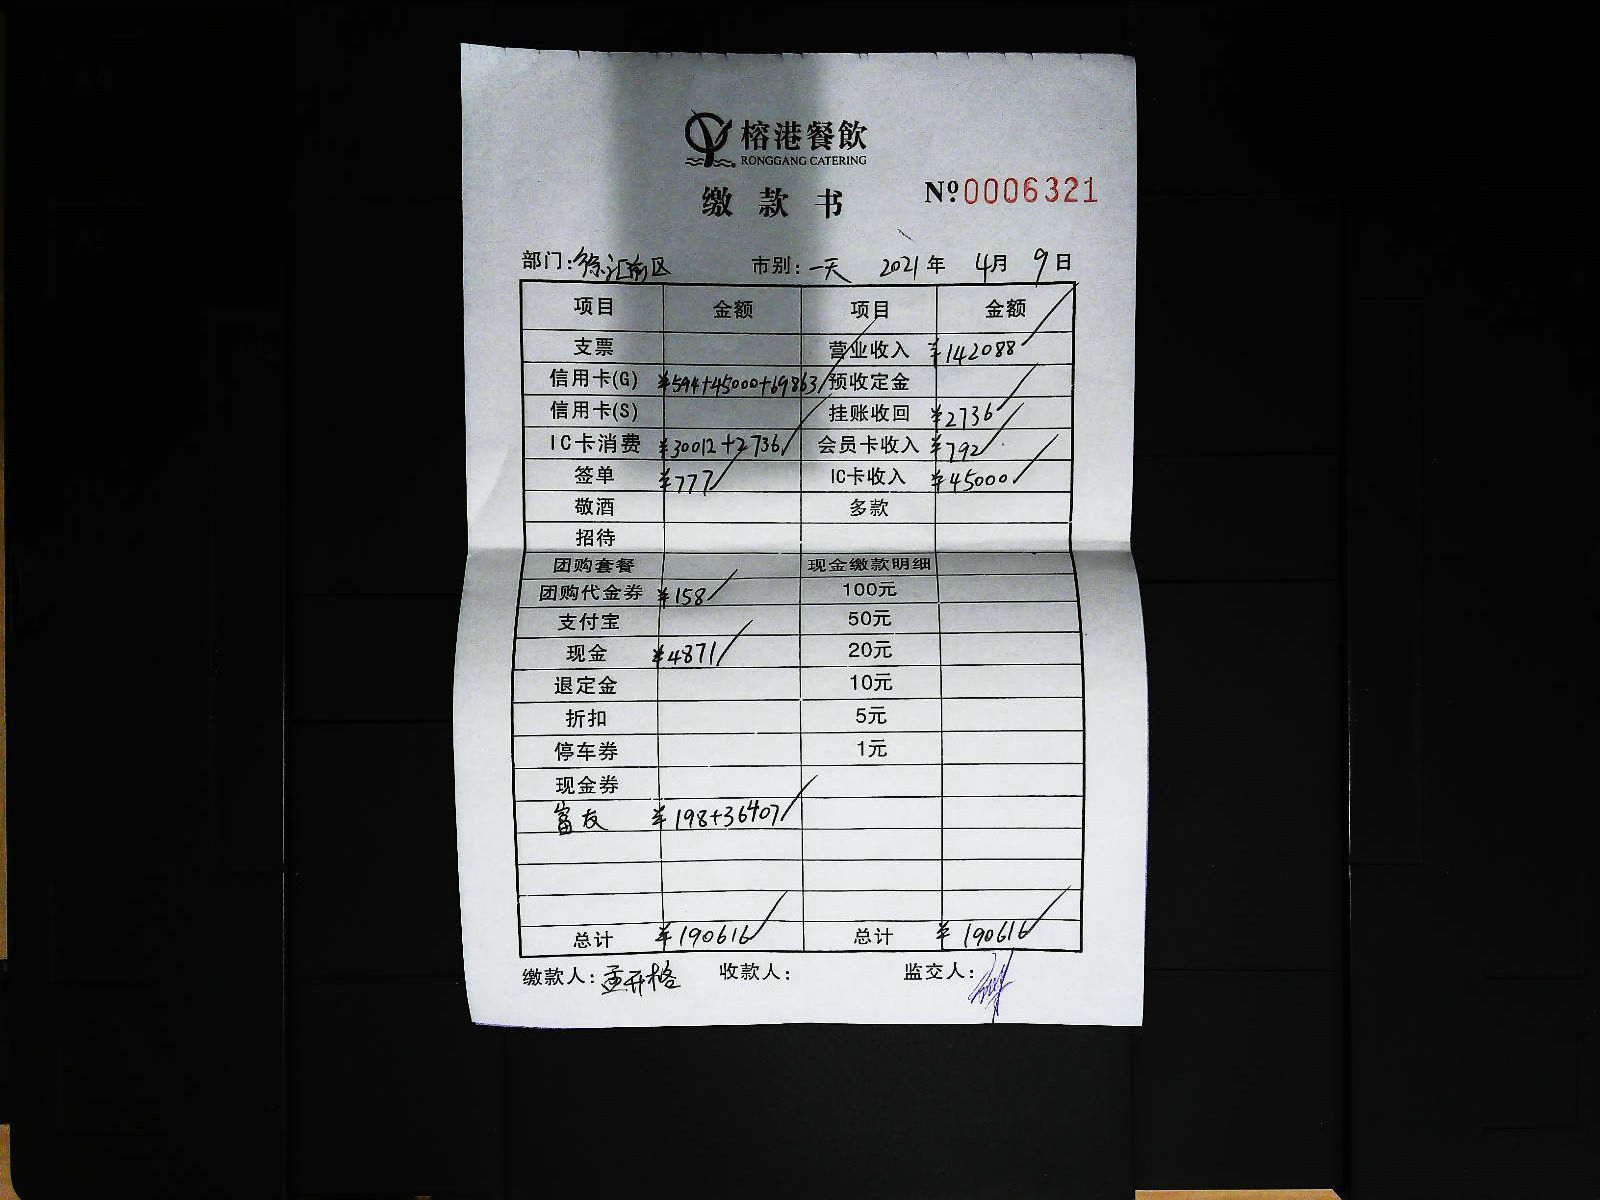 榕港餐飲
RONGGANG CATERING
缴款书
Nº:0006321
部门:徐汇南区 市别:一天 2021年 4月 9日
项目 金额 项目 金额
支票 营业收入 ¥142088
信用卡(G) ¥594+45000+69863 预收定金
信用卡(S) 挂账收回 ¥2736
IC卡消费 ¥30012+2736 会员卡收入 ¥792
签单 ¥777 IC卡收入 ¥45000
敬酒 多款
招待
团购套餐 现金缴款明细
团购代金券 ¥158 100元
支付宝 50元
现金 ¥4871 20元
退定金 10元
折扣 5元
停车券 1元
现金券
富友 ¥198+36407
总计 ¥190616 总计 ¥190616
缴款人:孟开格 收款人: 监交人: